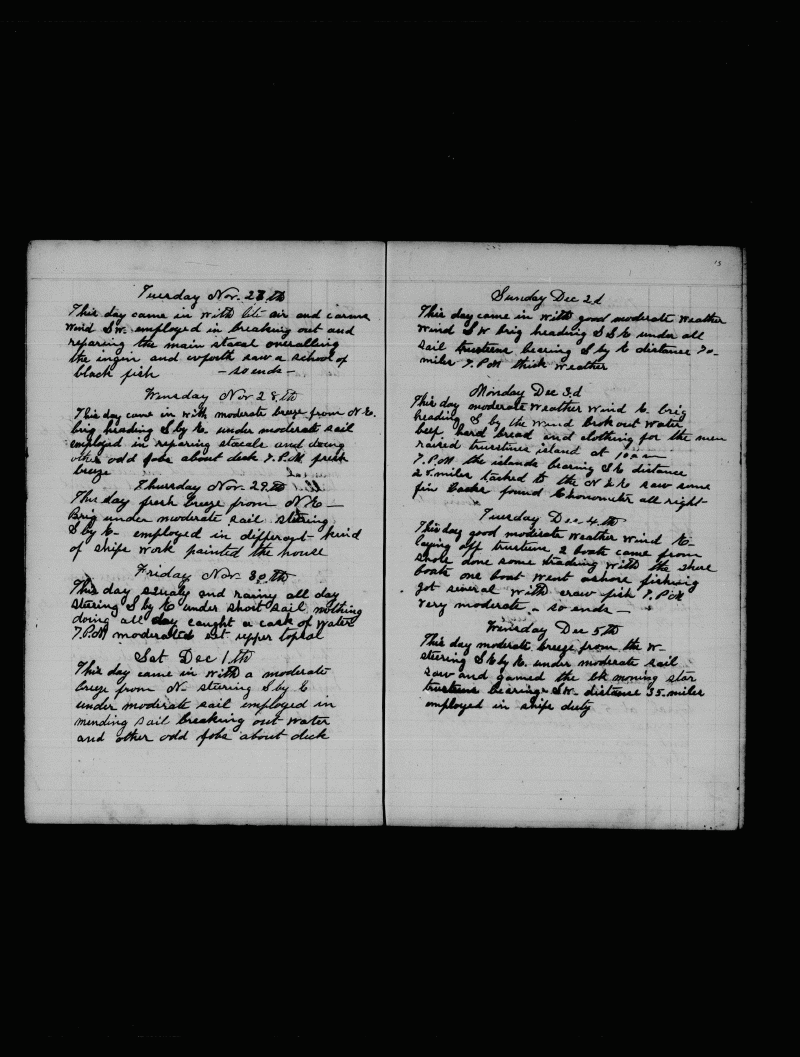 Tuesday Nov. 27.th
This day came in with lite air and carms
Wind SW. employed in breaking out and
reparing the main stacal overalling
the ingin and coforth saw a school of
black fish - so ends -
Wensday Nov 28.th
This day came in with moderate breeze from N.E.
brig heading S by E. under moderate sail
employed in reparing stacals and doing
other odd jobs about deck 7.P.M fresh
breeze
Thursday Nov. 29.th
This day fresh breeze from N.E -
Brig under moderate sail stering
S by E - employed in different - kind
of ships work painted the house
Friday Nov. 30.th
This day squaly and rainy all day
stering S by E under short sail nothing
doing all day caught a cask of water
7.P.M moderated set upper topsal
Sat Dec 1th
This day came in with a moderate
breeze from N - steering S by E
under moderate sail employed in
mending sail breaking out water
and other odd jobs about deck
15
Sunday Dec 2d
This day came in with good moderate weather
Wind SW brig heading S S E under all
sail trusteene bearing S by E distance 70 -
miles 7.P.M thick weather
Monday Dec 3.d
This day moderate weather wind E. brig
heading S by the wind brok out water
beef hard bread and clothing for the men
raised trusteene island at 10 a m
7.P.M the islands bearing S E distance
25. miles tacked to the N & E saw some
fin backs found Chonometer all right
Tuesday Dec 4.th
This day good moderate weather wind E -
laying off trusteene 2 boats came from
shore done some trading with the shore
boats one boat went ashore fishing
got several with craw fish 7.P.M
very moderate - so ends -
Wensday Dec 5th
This day moderate breeze from the W -
steering S E by E. under moderate sail
saw and gamed the bk morning star
trusteene bearing SW - distance 35. miles
employed in ships duty